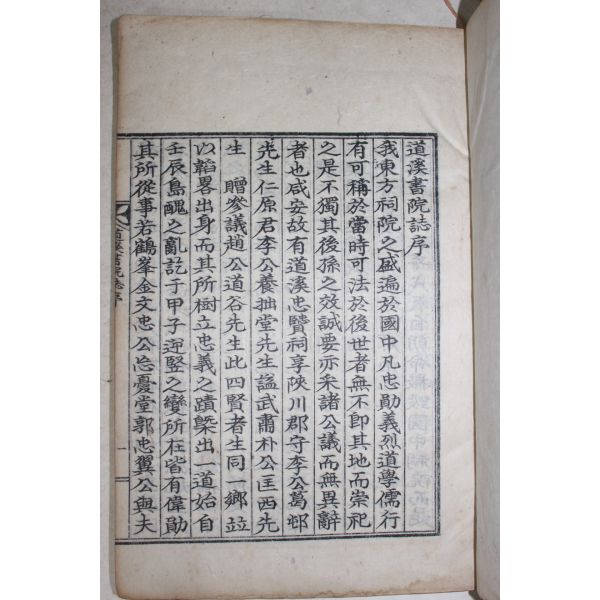 道溪書院誌序
我東方祠院之盛遍於國中凡忠勛義烈道學儒行
有可稱於當時可法於後世者無不即其地而崇祀
之是不獨其後孫之效誠要亦采諸公議而無異辭
者也咸安故有道溪忠賢祠享陜川郡守李公葛邨
先生仁原君李公養拙堂先生諡武肅朴公匡西先
生 贈參議趙公道谷先生此四賢者生同一鄉並
以韜畧出身而其所樹立忠義之蹟槩出一道始自
壬辰島醜之亂訖于甲子逆竪之變所在皆有偉勛
其所從事若鶴峯金文忠公忘憂堂郭忠翼公與夫
道溪書院誌序
一